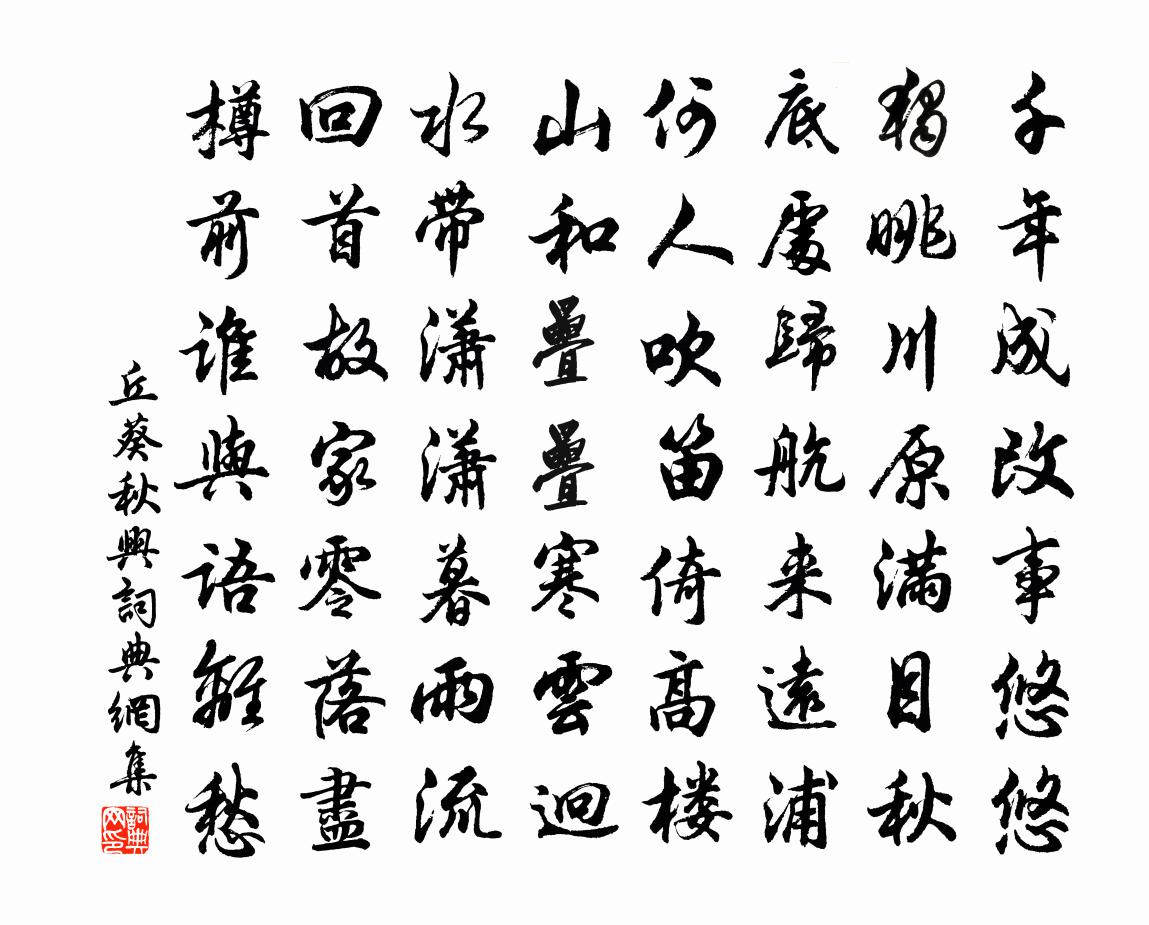 千年成改事悠悠
獨眺川原滿目秋
底處歸航来遠浦
何人吹笛倚高楼
山和疊疊寒雲迥
水帶瀟瀟暮雨流
回首故家零落盡
樽前誰與語離愁
丘葵秋興詞典網集
詞典网印